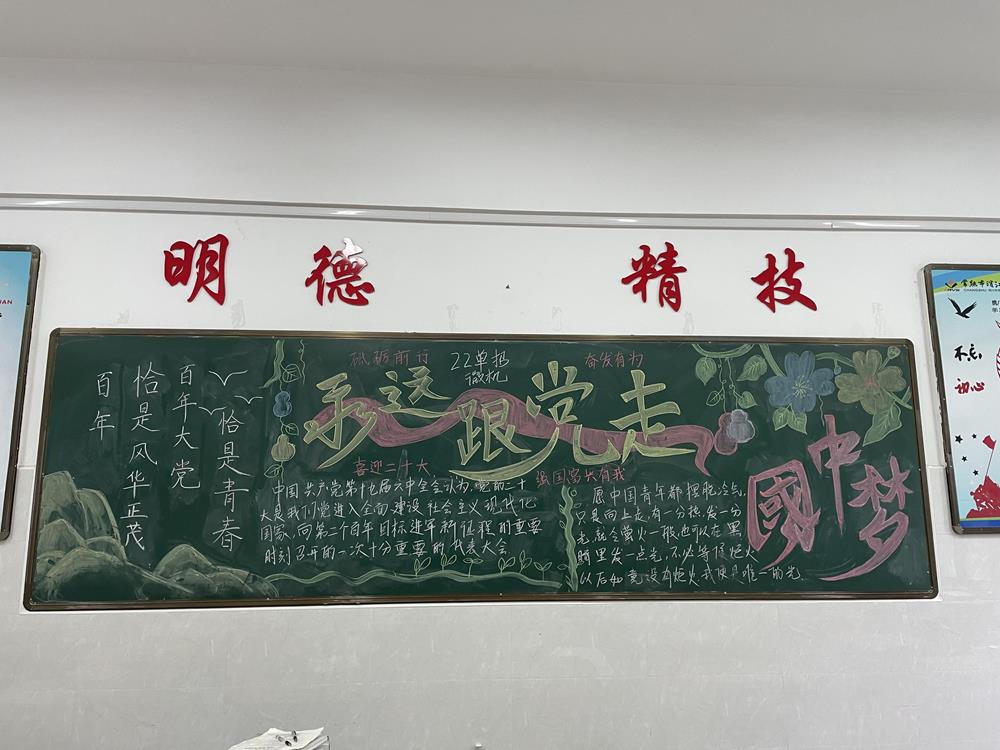 明德 精技
砥砺前行
22单招
微机
奋发有为
永远跟党走
百年
恰是风华正茂
百年大党
恰是青春
喜迎二十大
中国共产党第十九届六中全会认为,党的二十
大是我们党进入全面建设社会主义现代化
国家,向第二个百年目标进军新征程的重要
时刻召开的一次十分重要的代表大会
强国富共有我
愿中国青年都摆脱冷气,
只是向上走,有一分热,发一分
光,就令萤火一般,也可以在黑
暗里发一点光,不必等候炬火
以后如竟没有炬火,我便是唯一的光.
中國梦
常熟市滨江
CHANGSHU
不忘
初心